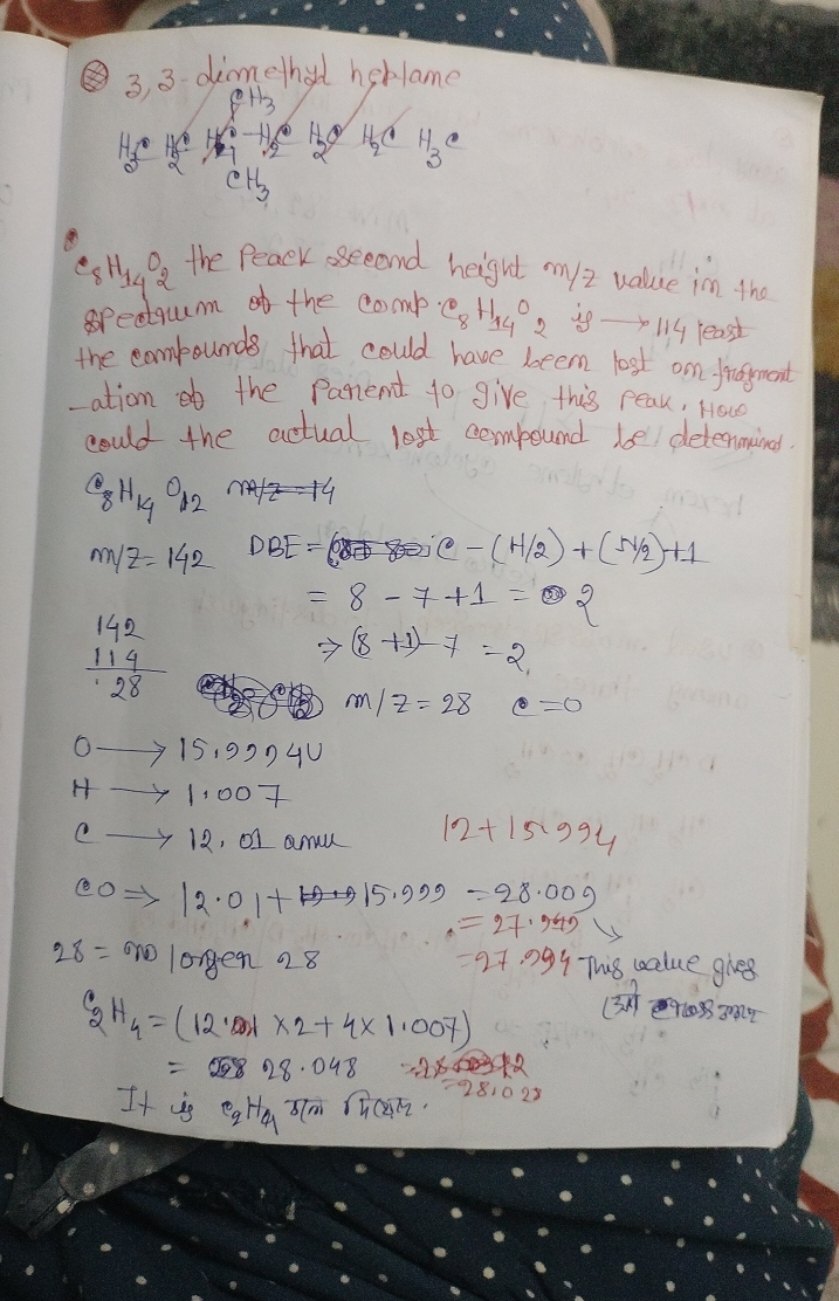 3,3-dimethyl heptane
CH3
H3C H2C C H2C H2C H2C H3C
CH3
C8H14O2 the Peack second height m/z value in the
spectrum of the comp. C8H14O2 is → 114 least
the compounds that could have been lost on fragment
-ation of the Parent to give this peak. How
could the actual lost compound be determined.
C8H14O2 m/z = 14
m/z = 142 DBE = C - (H/2) + (N/2) + 1
= 8 - 7 + 1 = 2
142
114
28
⇒ (8 + 1) - 7 = 2
m/z = 28 C=O
O → 15.9994U
H → 1.007
C → 12.01 amu 12+15.994
CO ⇒ 12.01 + 15.999 = 28.009
= 27.949
28 = no longer 28 = 27.994 This value gives
C2H4 = (12.01 x 2 + 4 x 1.007)
= 28.048 = 28.028
It is C2H4